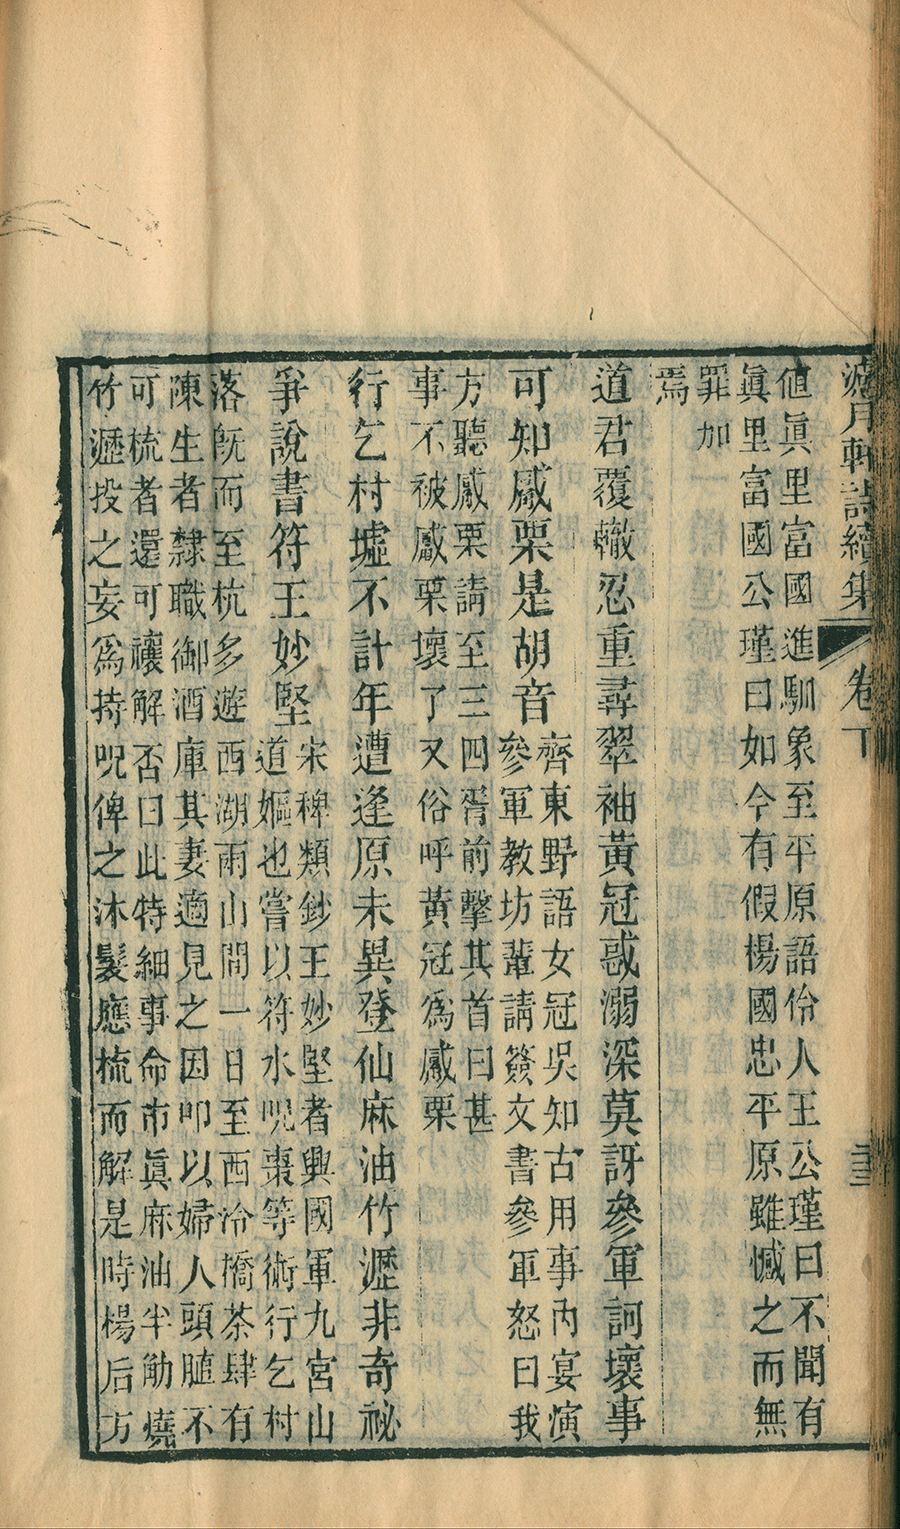 濾月軒詩續集 卷下
値眞里富國進馴象至平原語伶人王公瑾曰不聞有
眞里富國公瑾曰如今有假楊國忠平原雖憾之而無
罪加
焉
道君覆轍忍重尋翠袖黃冠惑溺深莫訝參軍訶壞事
可知觱栗是胡音
齊東野語女冠吳知古用事內宴演
參軍教坊輩請簽文書參軍怒曰我
方聽觱栗請至三四胥前擊其首曰甚
事不被觱栗壞了又俗呼黃冠爲觱栗
行乞村墟不計年遭逢原未異登仙麻油竹瀝非奇祕
爭說書符王妙堅
宋稗類鈔王妙堅者興國軍九宮山
道嫗也嘗以符水呪棗等術行乞村
落旣而至杭多遊西湖兩山間一日至西泠橋茶肆有
陳生者隸職御酒庫其妻適見之因叩以婦人頭膱不
可梳者還可禳解否曰此特細事命市眞麻油半觔燒
竹瀝投之妄爲持呪俾之沐髮應梳而解是時楊后方